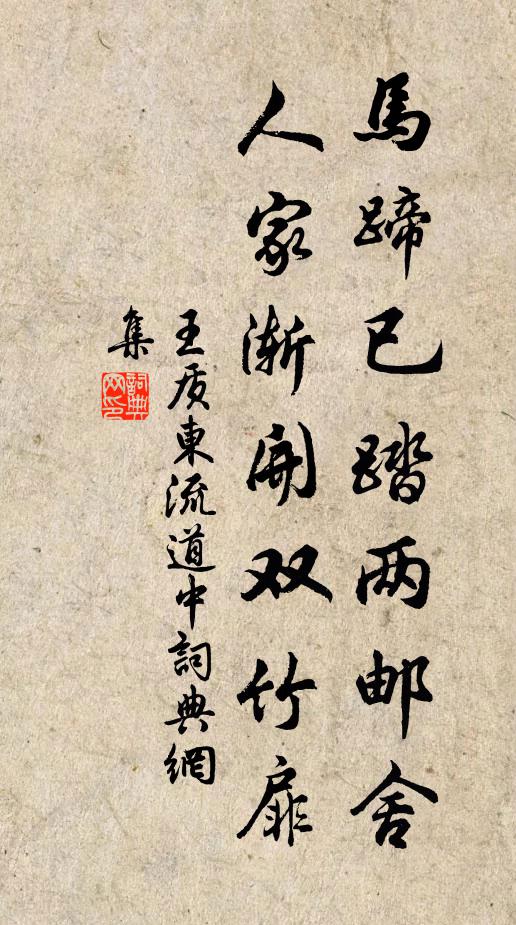 馬蹄已踏两邮舍
人家渐開双竹扉
王质東流道中詞典網
集
詞典
网印